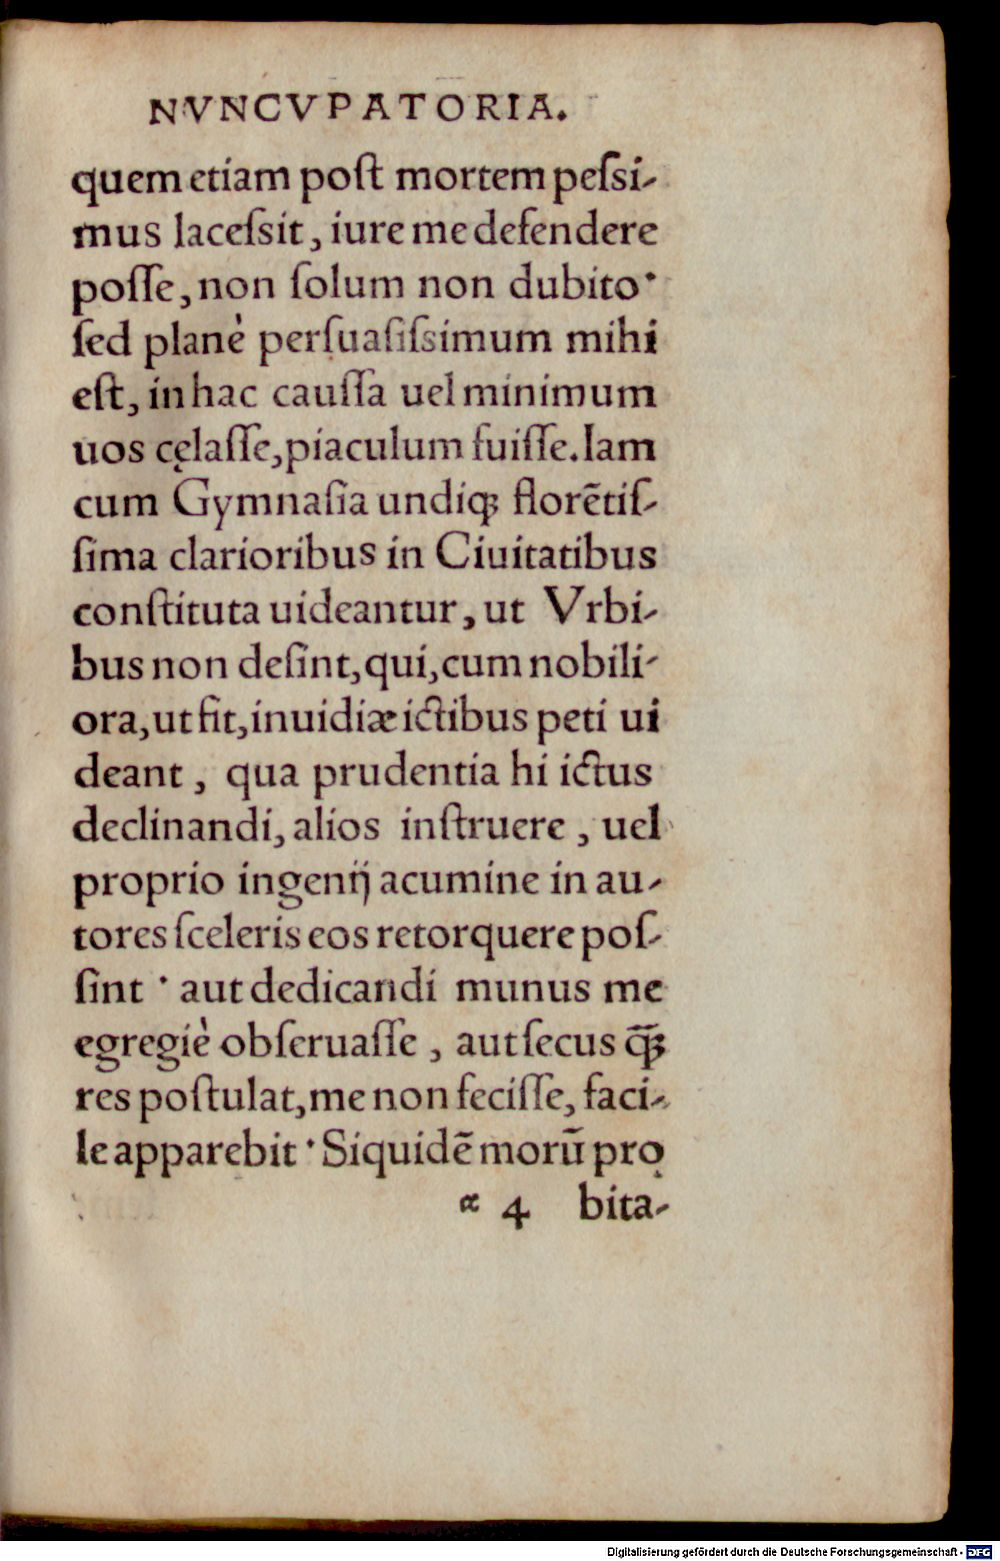 NVNCVPATORIA.
quem etiam poſt mortem peſsi-
mus laceſsit, iure me defendere
poſſe, non ſolum non dubito·
ſed planè perſuaſiſsimum mihi
eſt, in hac cauſſa uel minimum
uos cęlaſſe, piaculum fuiſſe. Iam
cum Gymnaſia undiqꝫ florētiſ-
ſima clarioribus in Ciuitatibus
conſtituta uideantur, ut Vrbi-
bus non deſint, qui, cum nobili-
ora, ut fit, inuidiæ ictibus peti ui
deant, qua prudentia hi ictus
declinandi, alios inſtruere, uel
proprio ingenij acumine in au-
tores ſceleris eos retorquere poſ-
ſint · aut dedicandi munus me
egregiè obſeruaſſe, aut ſecus q̄ꝫ
res poſtulat, me non feciſſe, faci-
le apparebit · Siquidē morū pro
α 4 bita-
Digitalisierung gefördert durch die Deutsche Forschungsgemeinschaft - DFG